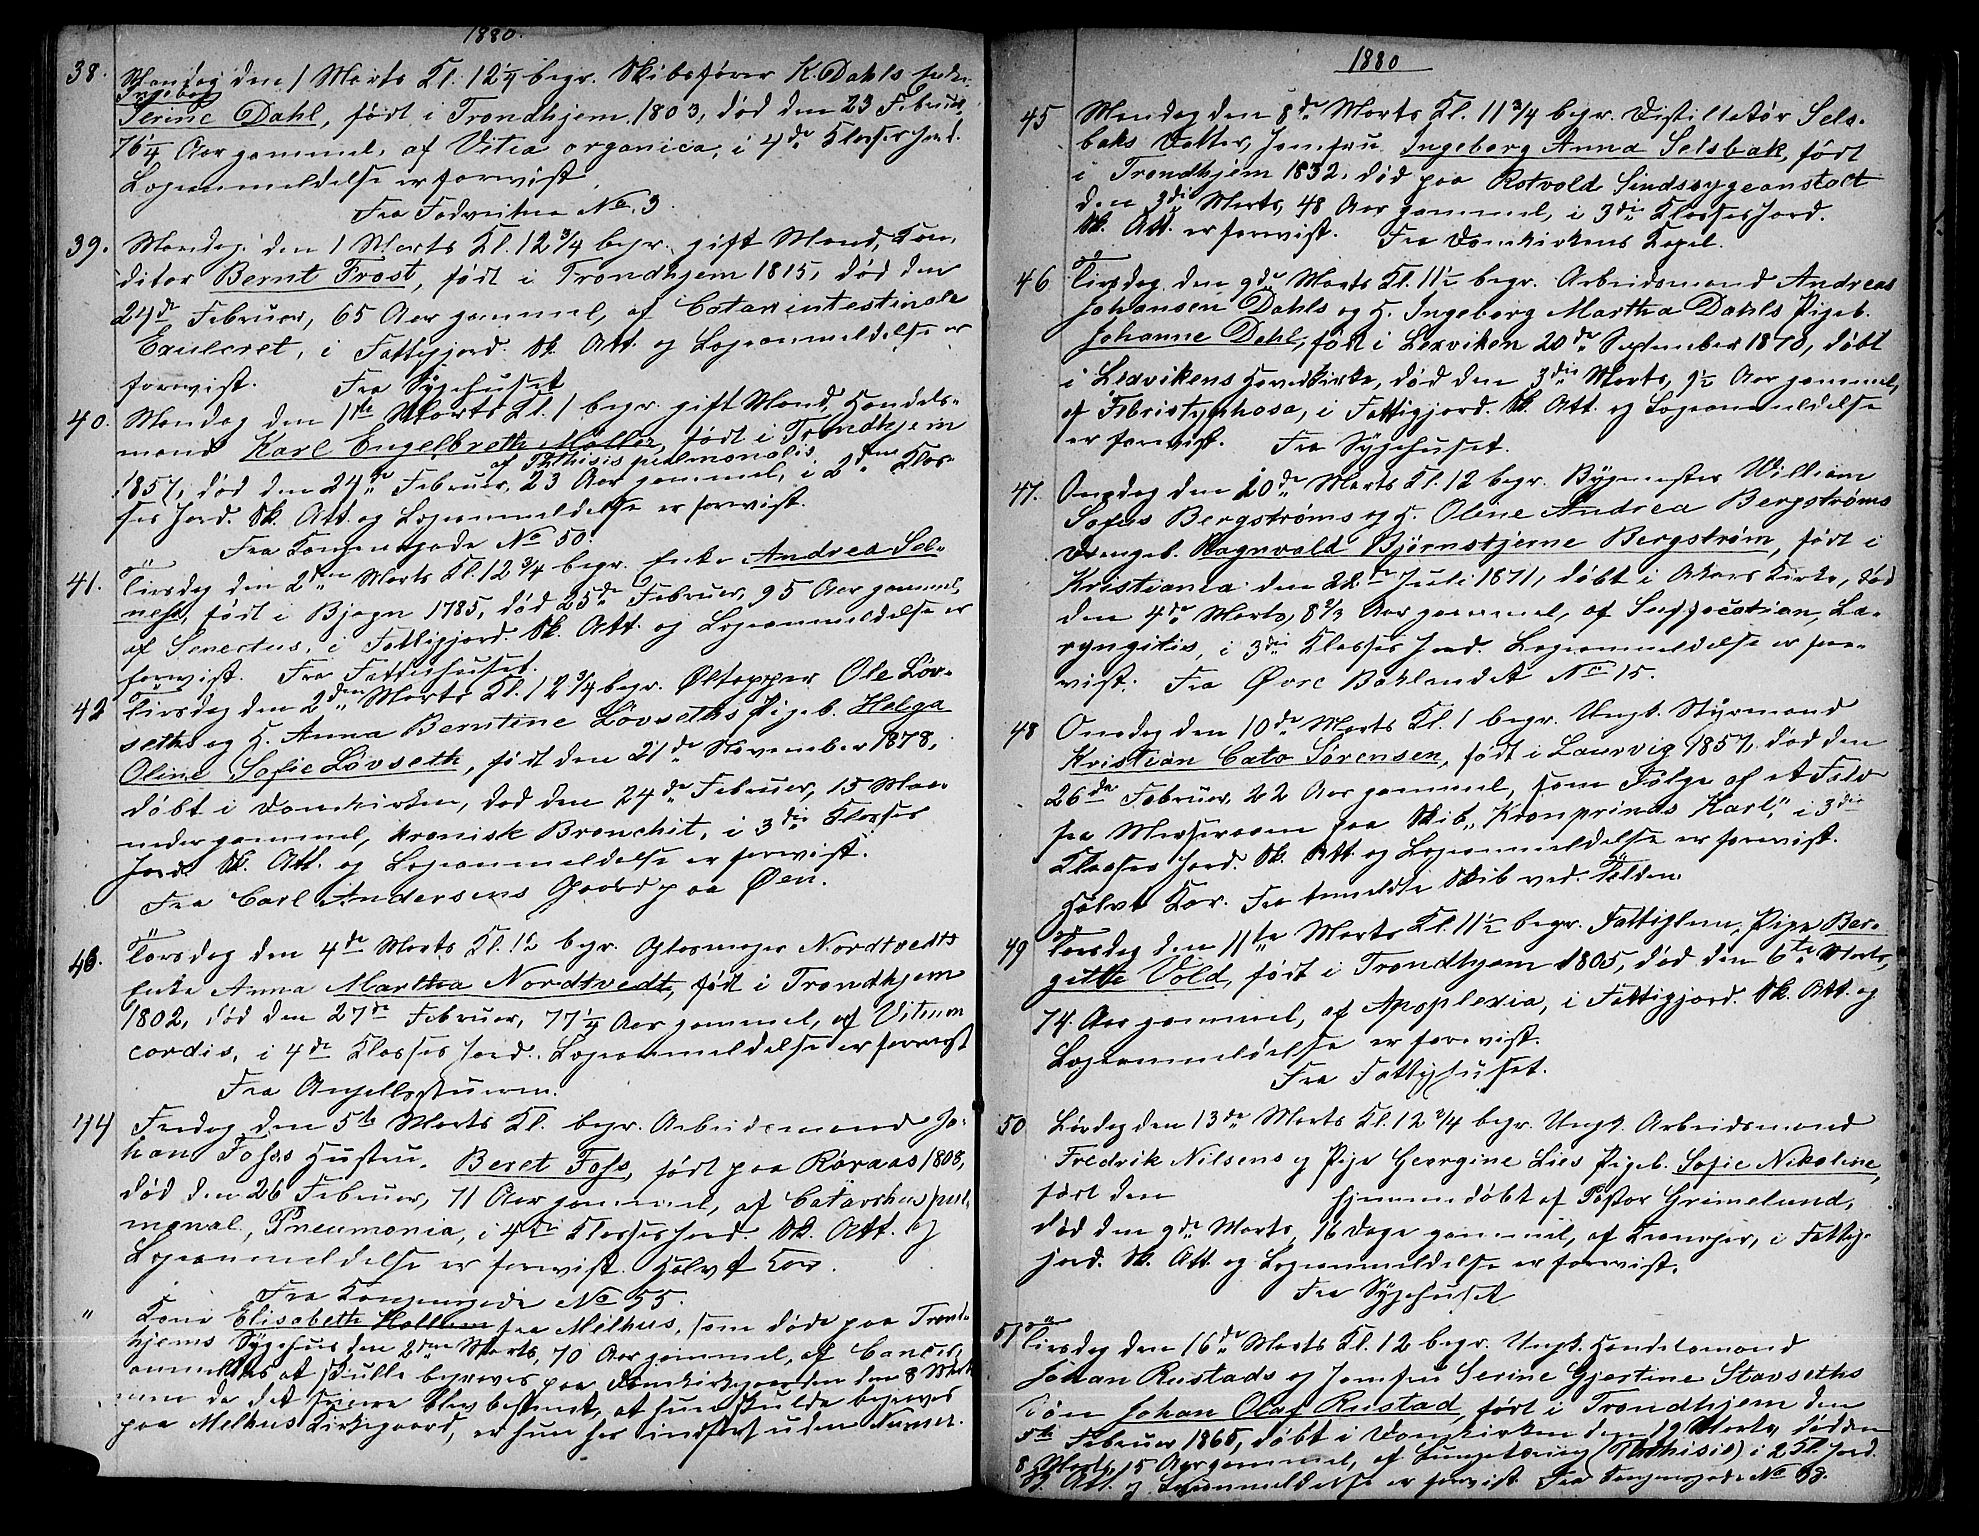 1880.
38. Mandag den 1 Marts Kl. 12 1/4 begr. Skibsfører K. Dahls Enke
Ingeborg
Serine Dahl, født i Trondhjem 1803, død den 23 Februar,
76 1/4 Aar gammel, af Vitia organica, i 4de Klasses Jord.
Lægeanmeldelse er forevist.
Fra No 3.
39. Mandag den 1 Marts Kl. 12 3/4 begr. gift Mand, Kon-
ditor Bernt Frost, født i Trondhjem 1815, død den
24de Februar, 65 Aar gammel, af Catar intestinale
Exulceret, i Fattigjord. Sk. Att. og Lægeanmeldelse er
forevist. Fra Sygehuset
40. Mandag den 1ste Marts Kl. 1 begr. gift Mand, Handels-
mand Karl Engelbreth Møller, født i Trondhjem
af Phthisis pulmonalis
1857, død den 24de Februar, 23 Aar gammel, i 2den Klas-
ses Jord. Sk. Att. og Lægeanmeldelse er forevist.
Fra Kongensgade No 50.
41. Tirsdag den 2den Marts Kl. 12 3/4 begr. Enke Andrea Sel-
ness, født i Bjøgn 1785, død 25de Februar, 95 Aar gammel,
af Senectus, i Fattigjord. Sk. Att. og Lægeanmeldelse er
forevist. Fra Fattighuset.
42 Tirsdag den 2den Marts Kl. 12 3/4 begr. Øltapper Ole Løv-
seths og H. Anna Berntine Løvseths Pigeb. Helga
Oline Sofie Løvseth, født den 21de November 1878,
døbt i Domkirken, død den 24de Februar, 15 Maa-
neder gammel, kronisk Bronchit, i 3die Klasses
Jord. Sk. Att. og Lægeanmeldelse er forevist.
Fra Carl Andersens Gaard paa Øen.
43. Torsdag den 4de Marts Kl. 12 begr. Glasmager Nordtvedts
Enke Anna Martha Nordtvedt, født i Trondhjem
1802, død den 27de Februar, 77 1/4 Aar gammel, af Vitium
cordis, i 4de Klasses Jord. Lægeanmeldelse er forevist
Fra Angellsstuerne.
44 Fredag den 5te Marts Kl. begr. Arbeidsmand Jo-
han Foss's Hustru, Beret Foss, født paa Røraas 1808,
død den 26 Februar, 71 Aar gammel, af Catarrhus pul-
monal, Pneumonia, i 4de Klasses Jord. Sk. Att. og
Lægeanmeldelse er forevist. Halvt Kor.
Fra Kongensgade No 55.
" Kone Elisabeth Hollum fra Melhus, som døde paa Trond-
hjems Sygehus den 2den Marts, 70 Aar gammel, af Cancer,
anmeldtes at skulle begraves paa Domkirkegaarden den 8 Marts
men da det senere blev bestemt, at hun skulde begraves
paa Melhus Kirkegaard, er hun her indført uden Numer.
1880
45 Mandag den 8de Marts Kl. 11 3/4 begr. Distillatør Sels-
baks Datter, Jomfru Ingeborg Anna Selsbak, født
i Trondhjem 1832, død paa Rotvold Sindssygeanstalt
den 3die Marts, 48 Aar gammel, i 3die Klasses Jord.
Sk. Att. er forevist. Fra Domkirkens Kapel.
46 Tirsdag den 9de Marts Kl. 11 1/2 begr. Arbeidsmand Andreas
Johansen Dahls og H. Ingeborg Martha Dahls Pigeb.
Johanne Dahl, født i Lexviken 20de September 1870, døbt
i Lexvikens Hovedkirke, død den 3die Marts, 9 1/2 Aar gammel,
af Febristyphosa, i Fattigjord. Sk. Att. og Lægeanmeldelse
er forevist. Fra Sygehuset.
47. Onsdag den 10de Marts Kl. 12 begr. Bygmester William
Sofus Bergstrøms og H. Oline Andrea Bergstrøms
Drengeb. Ragnvald Bjørnstjerne Bergstrøm, født i
Kristiania den 22de Juli 1871, døbt i Akers Kirke, død
den 4de Marts, 8 2/3 Aar gammel, af Suffocation, La-
ryngitis, i 3die Klasses Jord. Lægeanmeldelse er fore-
vist. Fra Øvre Baklandet No 15.
48 Onsdag den 10de Marts Kl. 1 begr. Ungk. Styrmand
Kristian Cato Sørensen, født i Laurvig 1857, død den
26de Februar, 22 Aar gammel, som Følge af et Fald
fra Merseraaen paa Skib "Kronprinds Karl", i 3die
Klasses Jord. Sk. Att. og Lægeanmeldelse er forevist.
Halvt Kor. Fra anmeldte Skib ved Kølden.
49 Torsdag den 11te Marts Kl. 11 1/2 begr. Fattiglem, Pige Ber-
gitte Vold, født i Trondhjem 1805, død den 6te Marts,
74 Aar gammel, af Apoplexia, i Fattigjord. Sk. Att. og
Lægeanmeldelse er forevist.
Fra Fattighuset.
50 Lørdag den 13de Marts Kl. 12 3/4 begr. Ungk. Arbeidsmand
Fredrik Nilsens og Pige Georgine Lies Pigeb. Sofie Nikoline,
født den hjemmedøbt af Pastor Grimelund,
død den 9de Marts, 16 Dage gammel, af Kramper, i Fattig-
jord. Sk. Att. og Lægeanmeldelse er forevist.
Fra Sygehuset
51 Tirsdag den 16de Marts Kl. 12 begr. Ungk. Handelsmand
Johan Rustads og Jomfru Serine Gjertine Stavseths
Søn Johan Olaf Rustad, født i Trondhjem den
5te Februar 1865, døbt i Domkirken den 19 Marts, død den
8 Marts, 15 Aar gammel, af Lungetæring (Phthisis) i 2 Kl. Jord.
Sk. Att. og Lægeanmeldelse er forevist. Fra Kongensgade No 38.